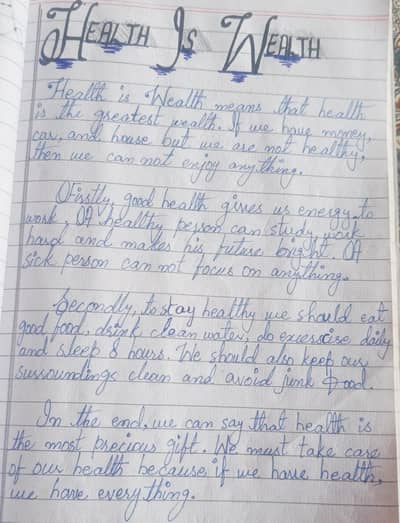 Health Is Wealth
Health is Wealth means that health
is the greatest wealth. If we have money,
car, and house but we are not healthy,
then we can not enjoy anything.
Firstly, good health gives us energy to
work. A healthy person can study, work
hard and makes his future bright. A
sick person can not focus on anything.
Secondly, to stay healthy we should eat
good food, drink clean water, do excersise daily
and sleep 8 hours. We should also keep our
surroundings clean and avoid junk food.
In the end, we can say that health is
the most precious gift. We must take care
of our health because if we have health,
we have everything.